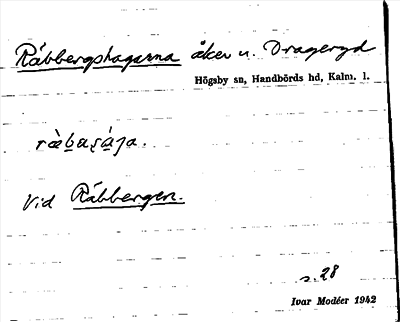 Råbbergshagarna åker u. Drageryd
Högsby sn, Handbörds hd, Kalm. l.
Vid Råbbergen.
s. 28
Ivar Modéer 1942